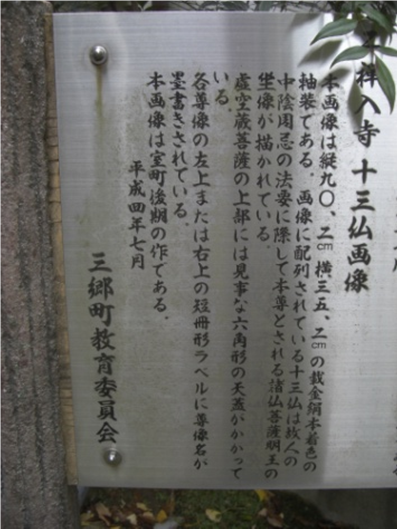 祥入寺 十三仏画像
本画像は縦九〇、二cm横三五、二cmの裁金絹本着色の
軸装である。画像に配列されている十三仏は故人の
中陰周忌の法要に際して本尊とされる諸仏菩薩明王の
坐像が描かれている。
虚空蔵菩薩の上部には見事な六角形の天蓋がかかって
いる。
各尊像の左上または右上の短冊形ラベルに尊像名が
墨書きされている。
本画像は室町後期の作である。
平成四年七月
三郷町教育委員会